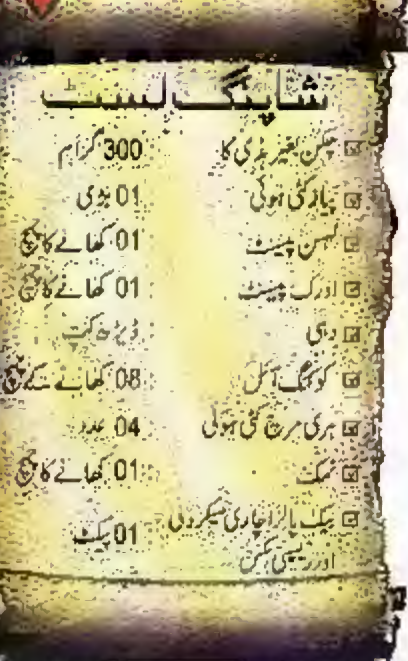 شاپنگ لسٹ
چکن بغیر ہڈی کا 300 گرام
پیاز کٹی ہوئی 01 بڑی
لہسن پیسٹ 01 کھانے کا چمچ
ادرک پیسٹ 01 کھانے کا چمچ
دہی ڈیڑھ کپ
کوکنگ آئل 08 کھانے کے چمچ
ہری مرچ کٹی ہوئی 04 عدد
نمک 01 کھانے کا چمچ
بیک پارلر اچاری میکرونی 01 پیکٹ
اور ریسیپی مکس